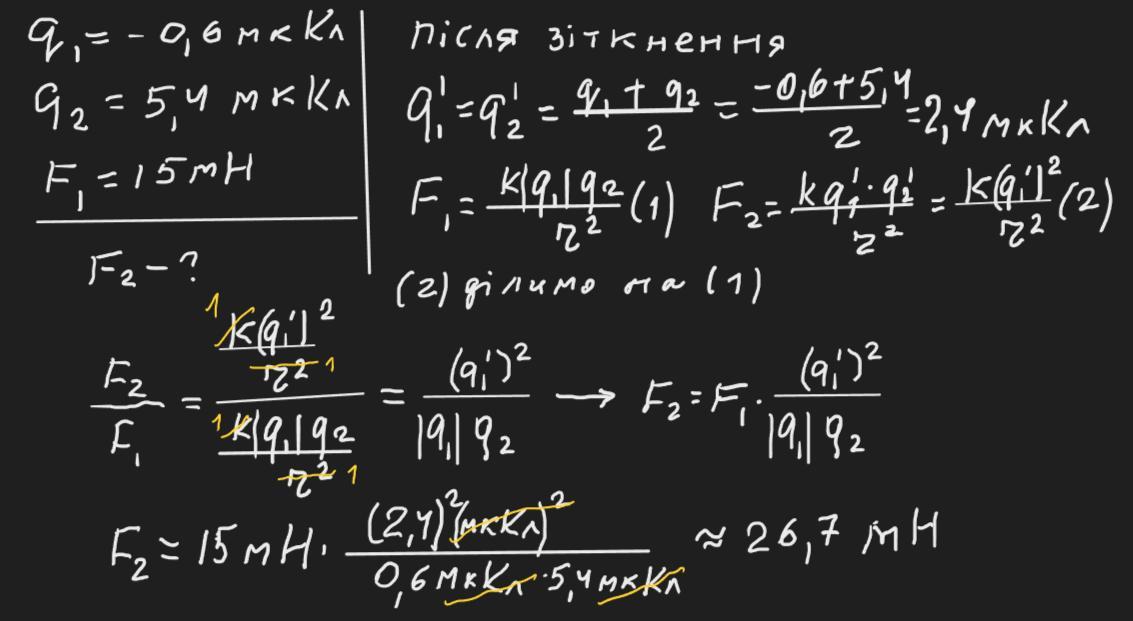 q₁ = - 0,6 мкКл
q₂ = 5,4 мкКл
F₁ = 15 мН
F₂ - ?
після зіткнення
q₁' = q₂' = (q₁ + q₂)/2 = (-0,6+5,4)/2 = 2,4 мкКл
F₁ = k|q₁|q₂/r² (1) F₂ = kq₁'·q₂'/r² = k(q₁')²/r² (2)
(2) ділимо на (1)
F₂/F₁ = (k(q₁')²/r²)/(k|q₁|q₂/r²) = (q₁')²/(|q₁|q₂) → F₂ = F₁ · (q₁')²/(|q₁|q₂)
1 1 1 1
F₂ = 15 мН · (2,4)²(мкКл)²/(0,6 мкКл · 5,4 мкКл) ≈ 26,7 мН